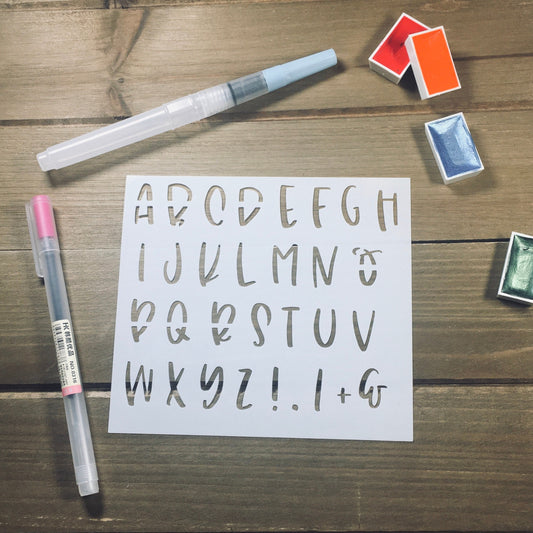 A B C D E F G H
I J K L M N O
P Q R S T U V
W X Y Z ! . , + &
NO.8316